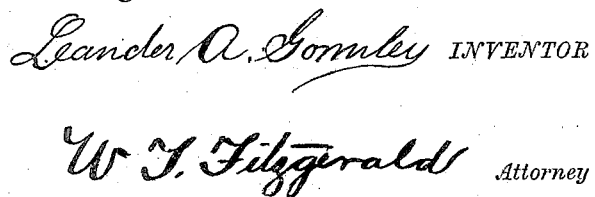 Leander A. Gormley INVENTOR
W. T. Fitzgerald Attorney